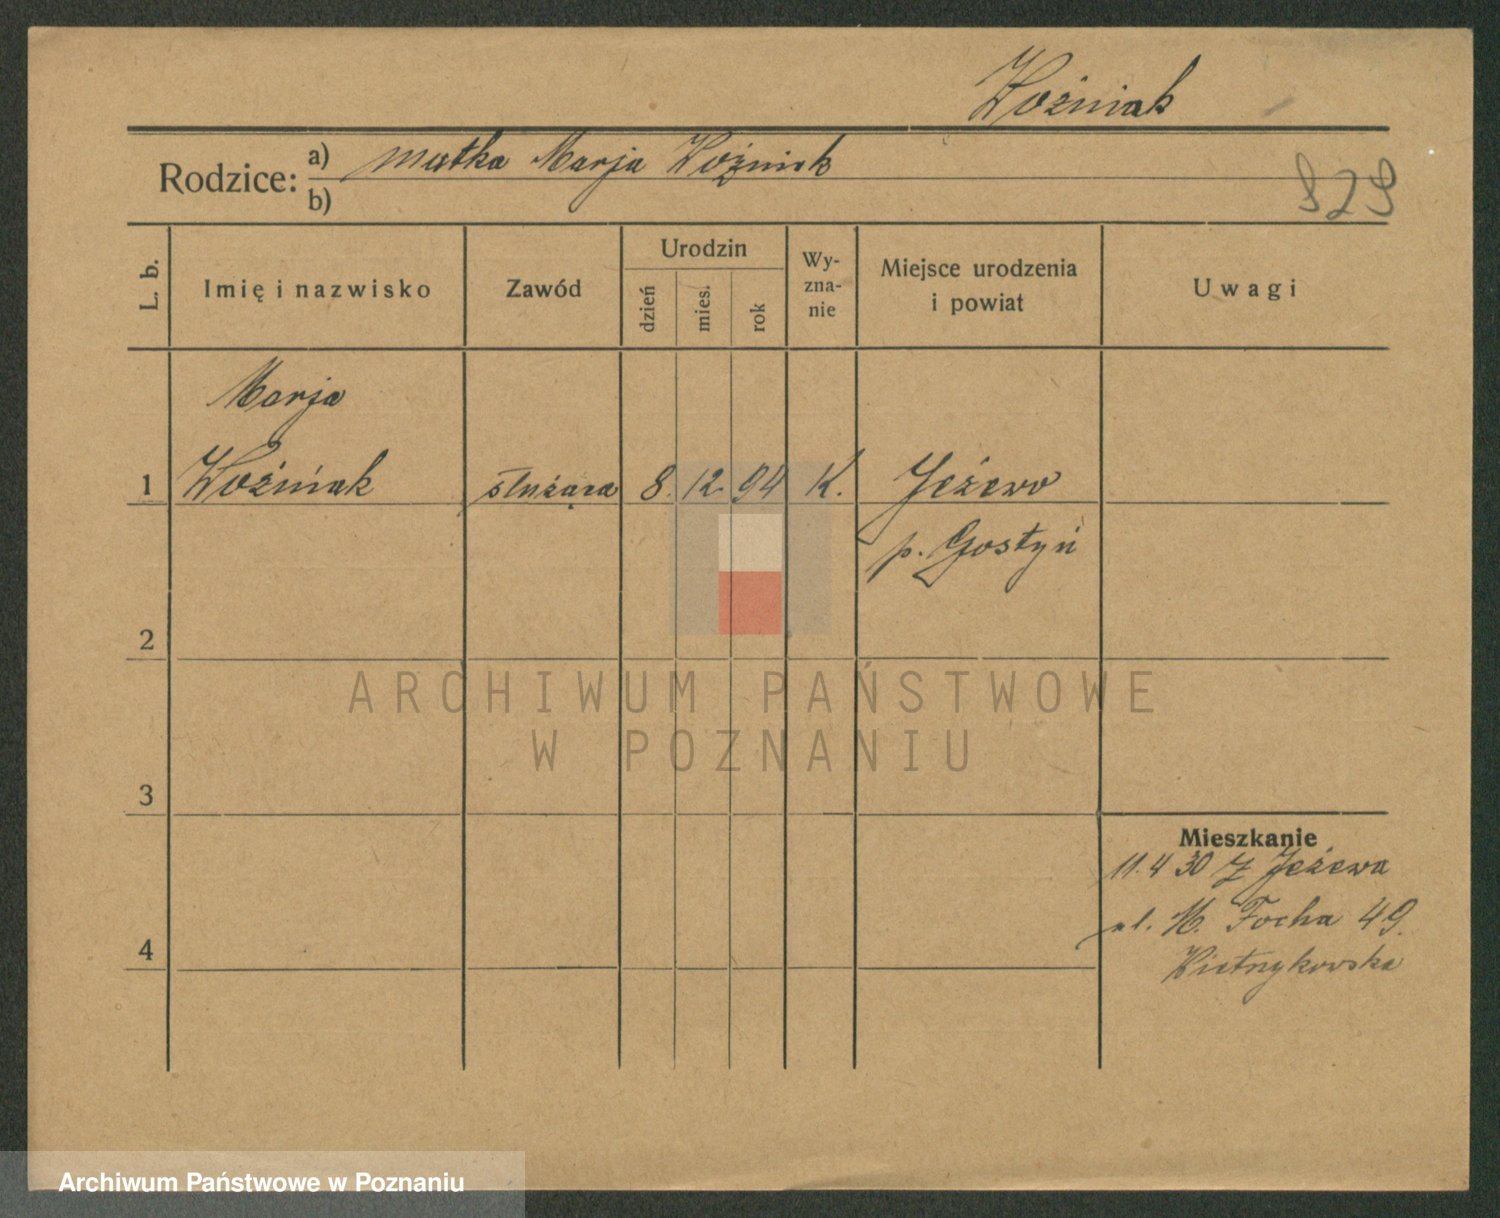 Woźniak
Rodzice: a) matka Marja Woźniak
b)
829
L. b.
Imię i nazwisko
Zawód
Urodzin
dzień
mies.
rok
Wy-
zna-
nie
Miejsce urodzenia
i powiat
Uwagi
Marja
1 Woźniak służąca 8. 12. 94 K. Jeżewo
p. Gostyń
2
3
4
Mieszkanie
11.4 30 z Jeżewa
ul. M. Focha 49.
ARCHIWUM PAŃSTWOWE
W POZNANIU
Archiwum Państwowe w Poznaniu